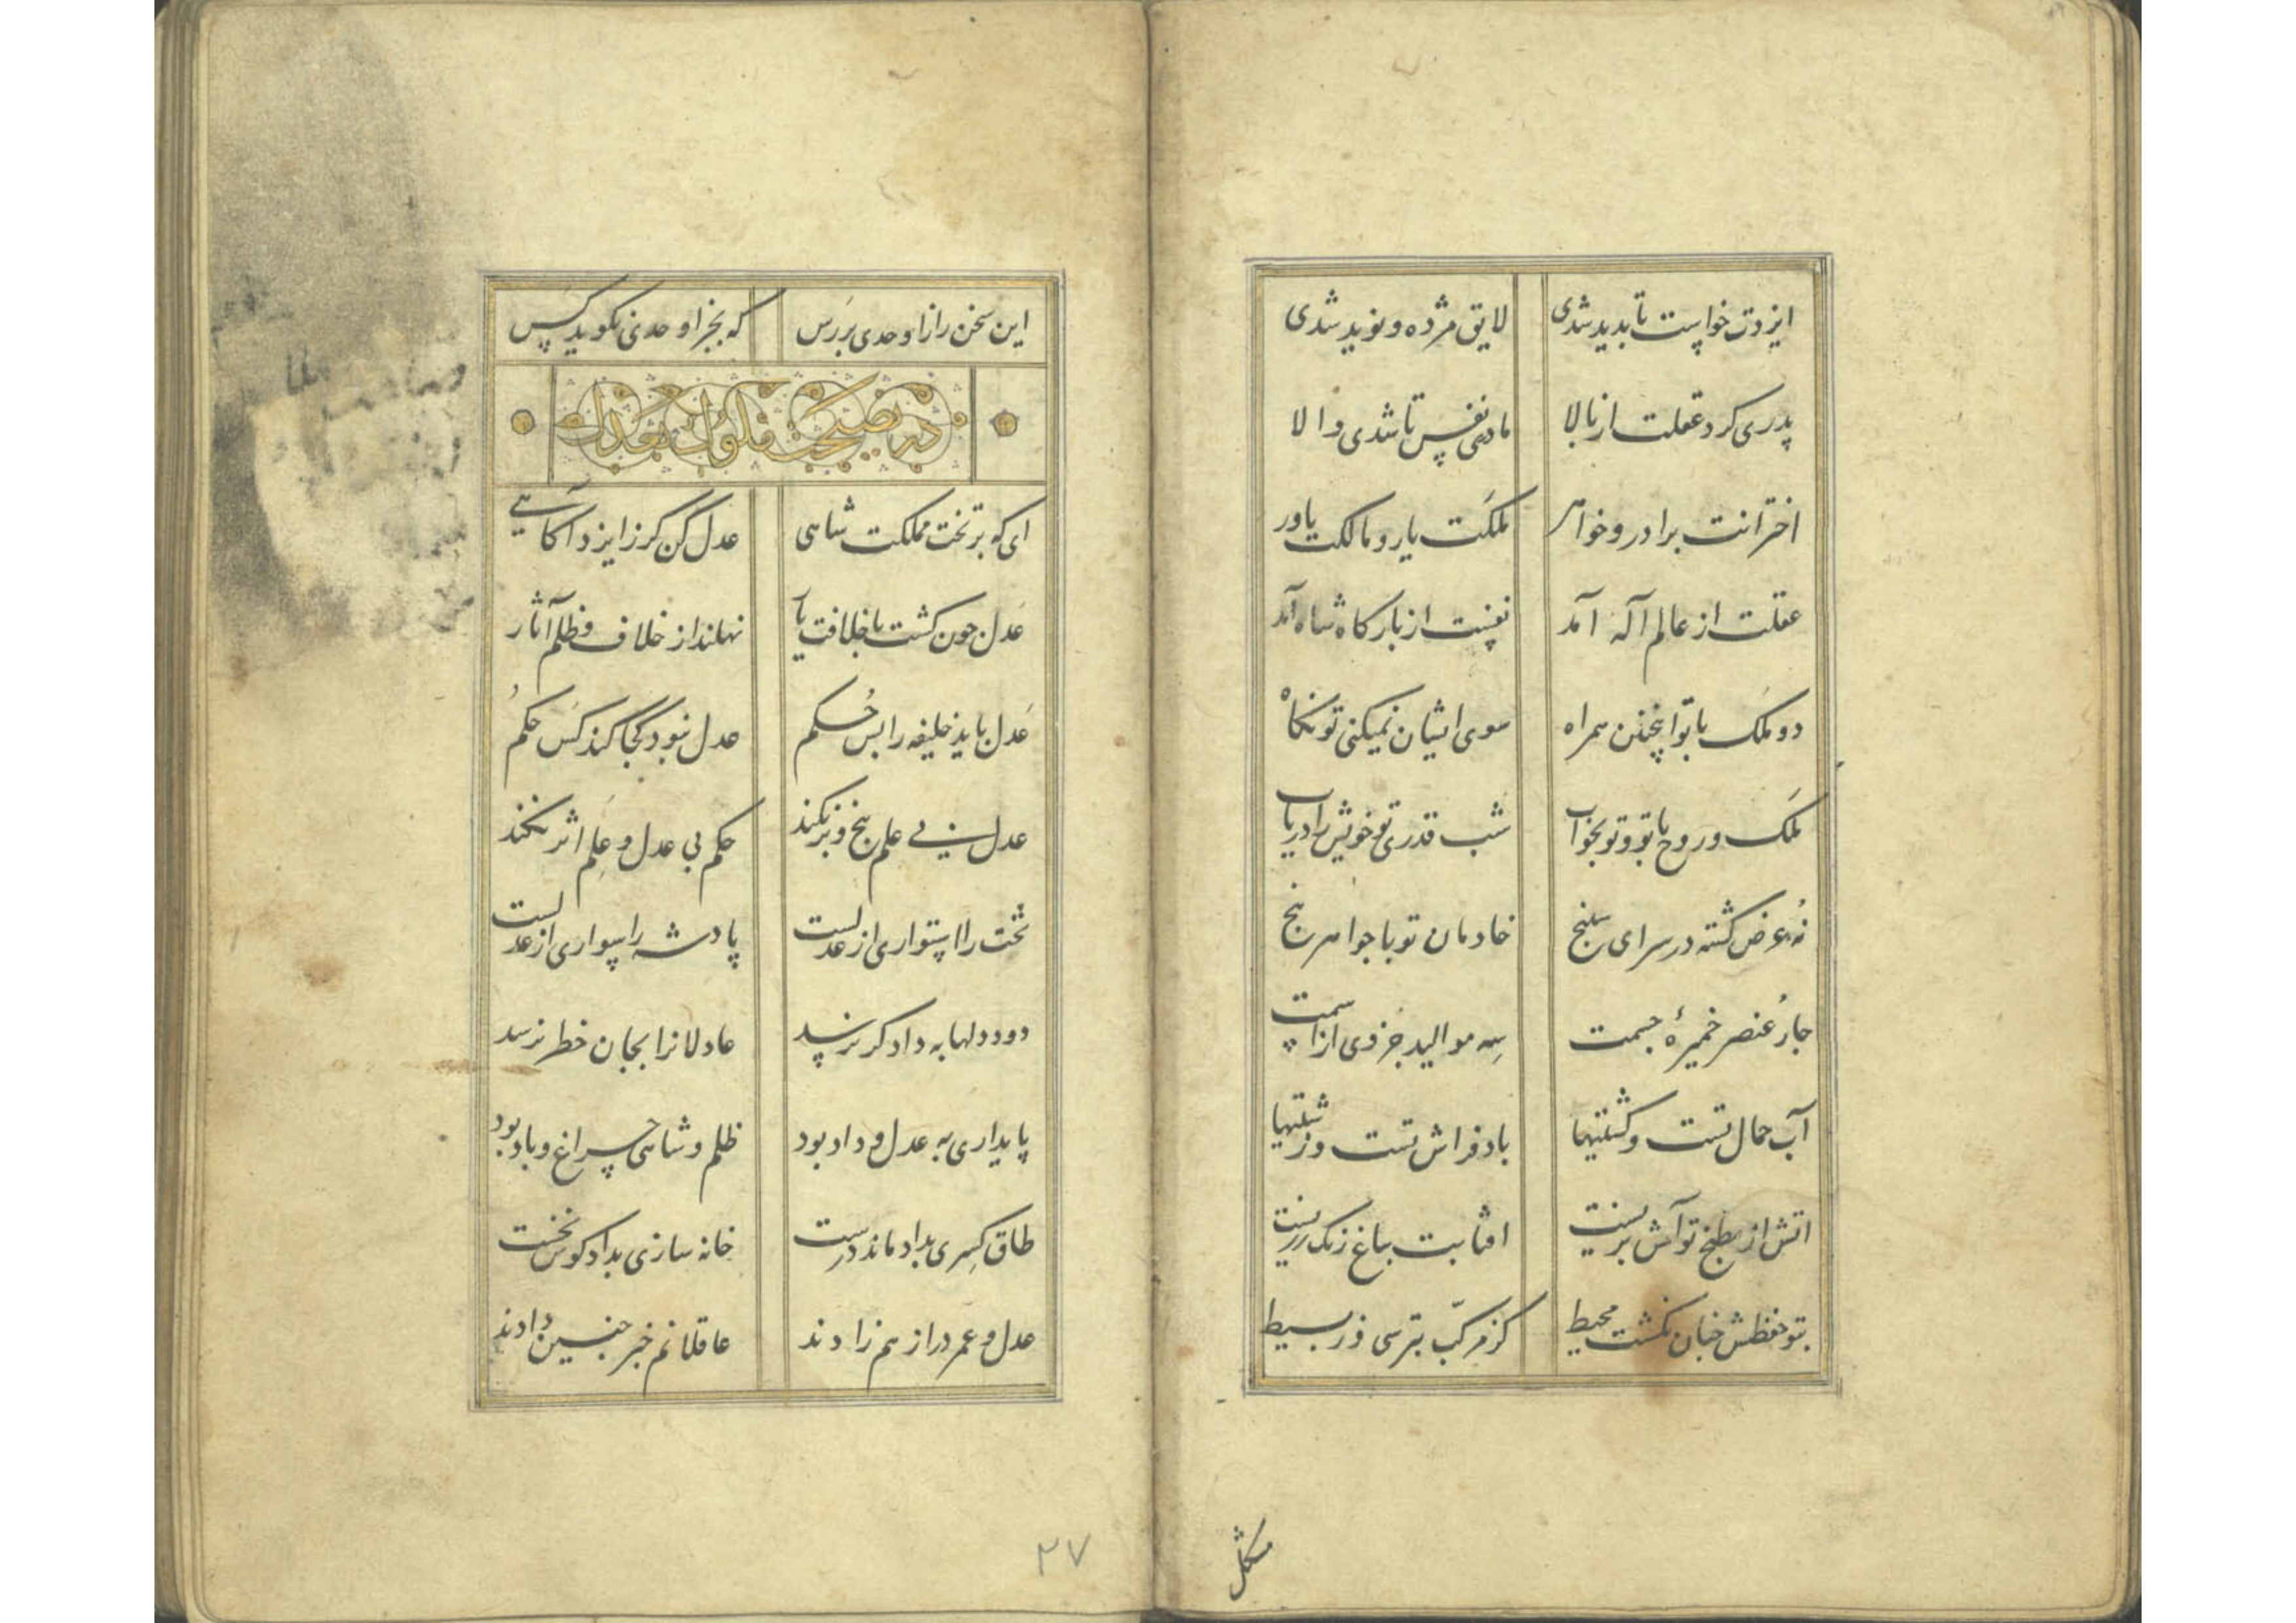 ایزدت خواست تا بدید شدی لایق مژده و نوید شدی
پدری کرد عقلت از بالا مادری نفس تا شدی والا
اخترانت برادر و خواهر ملکت یار و مالکت یاور
عقلت از عالم آله آمد نفست از بارکاه شاه آمد
دو ملک با تو اینچنین همراه سوی ایشان نمیکنی تو نکاه
ملک و روح با تو و تو بخواب شب قدری تو خویش را دریاب
نه عرض کشته در سرای سپنج خادمان تو با جواهر پنج
جار عنصر خمیرۀ جسمت سه موالید جزوی از اسمت
آب حمال تست و کشتیها باد فراش تست و زشتیها
اتش از مطبخ تو آش پزیست افتابت بباغ رنک رزیست
بتو حفظش جنان نکشت محیط کز مرکب بترسی وز بسیط
مشکل
این سخن راز اوحدی بررس که بجز اوحدی نکوید کس
در نصیحت ملوک بعدل
ای که بر تخت مملکت شاهی عدل کن کر ز ایزد آکاهی
عدل جون کشت با خلافت یار نهلند از خلاف و ظلم آثار
عدل باید خلیفه را بس حکم عدل نبود کجا کند کس حکم
عدل بی علم بیخ و بر نکند حکم بی عدل و علم اثر نکند
تخت را استواری از عدلست پادشه را سواری از عدلست
دود دلها به دادکر نرسد عادلانرا بجان خطر نرسد
پایداری به عدل و داد بود ظلم و شاهی چراغ و باد بود
طاق کسری بداد ماند درست خانه سازی بداد کوش نخست
عدل و عمر دراز هم زادند عاقلانم خبر جنین دادند
۲۷